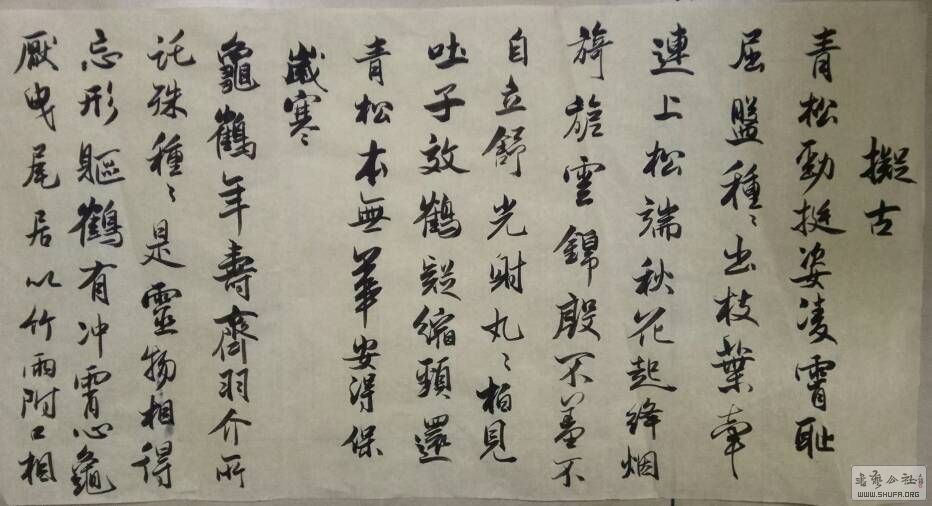 擬古
青松勁挺姿凌霄恥
屈盤種〻出枝葉牽
連上松端秋花起絳烟
旖旎雲錦殷不羞不
自立舒光射丸〻柏見
吐子效鶴疑縮頸還
青松本無華安得保
歲寒〻
龜鶴年壽齊羽介所
託殊種〻是靈物相得
忘形軀鶴有冲霄心龜
厭曳尾居以竹兩附口相
書藝公社
WWW.SHUFA.ORG